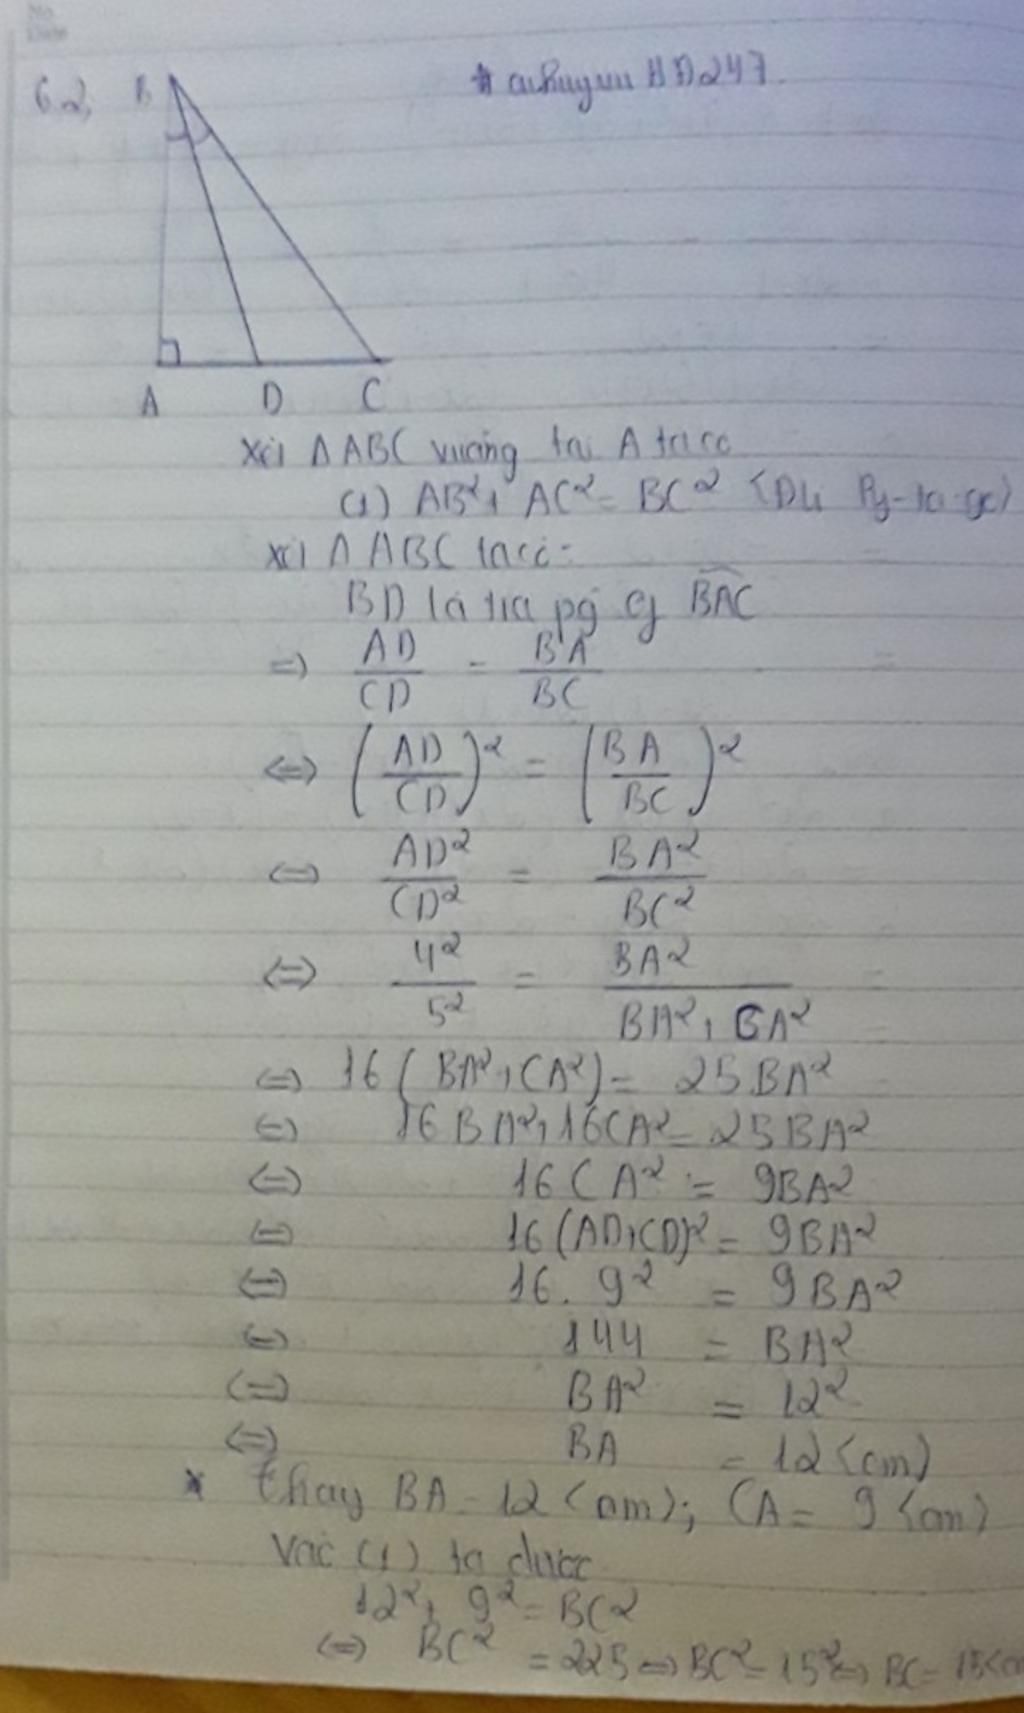 6.2,
B
A D C
Xét Δ ABC vuông tại A ta có
(1) AB² + AC² = BC² (Đlí Py-ta-go)
Xét Δ ABC ta có:
BD là tia pg củ BAC
=> AD/CD = BA/BC
<=> (AD/CD)² = (BA/BC)²
<=> AD²/CD² = BA²/BC²
<=> 4²/5² = BA²/BA² + CA²
<=> 16 (BA² + CA²) = 25BA²
<=> 16BA² + 16CA² = 25BA²
<=> 16CA² = 9BA²
<=> 16(AD+CD)² = 9BA²
<=> 16. 9² = 9BA²
<=> 144 = BA²
<=> BA² = 12²
<=> BA = 12 (cm)
* thay BA = 12 (cm); CA = 9 (cm)
vào (1) ta được
12² + 9² = BC²
<=> BC² = 225 <=> BC² = 15² <=> BC = 15 (c